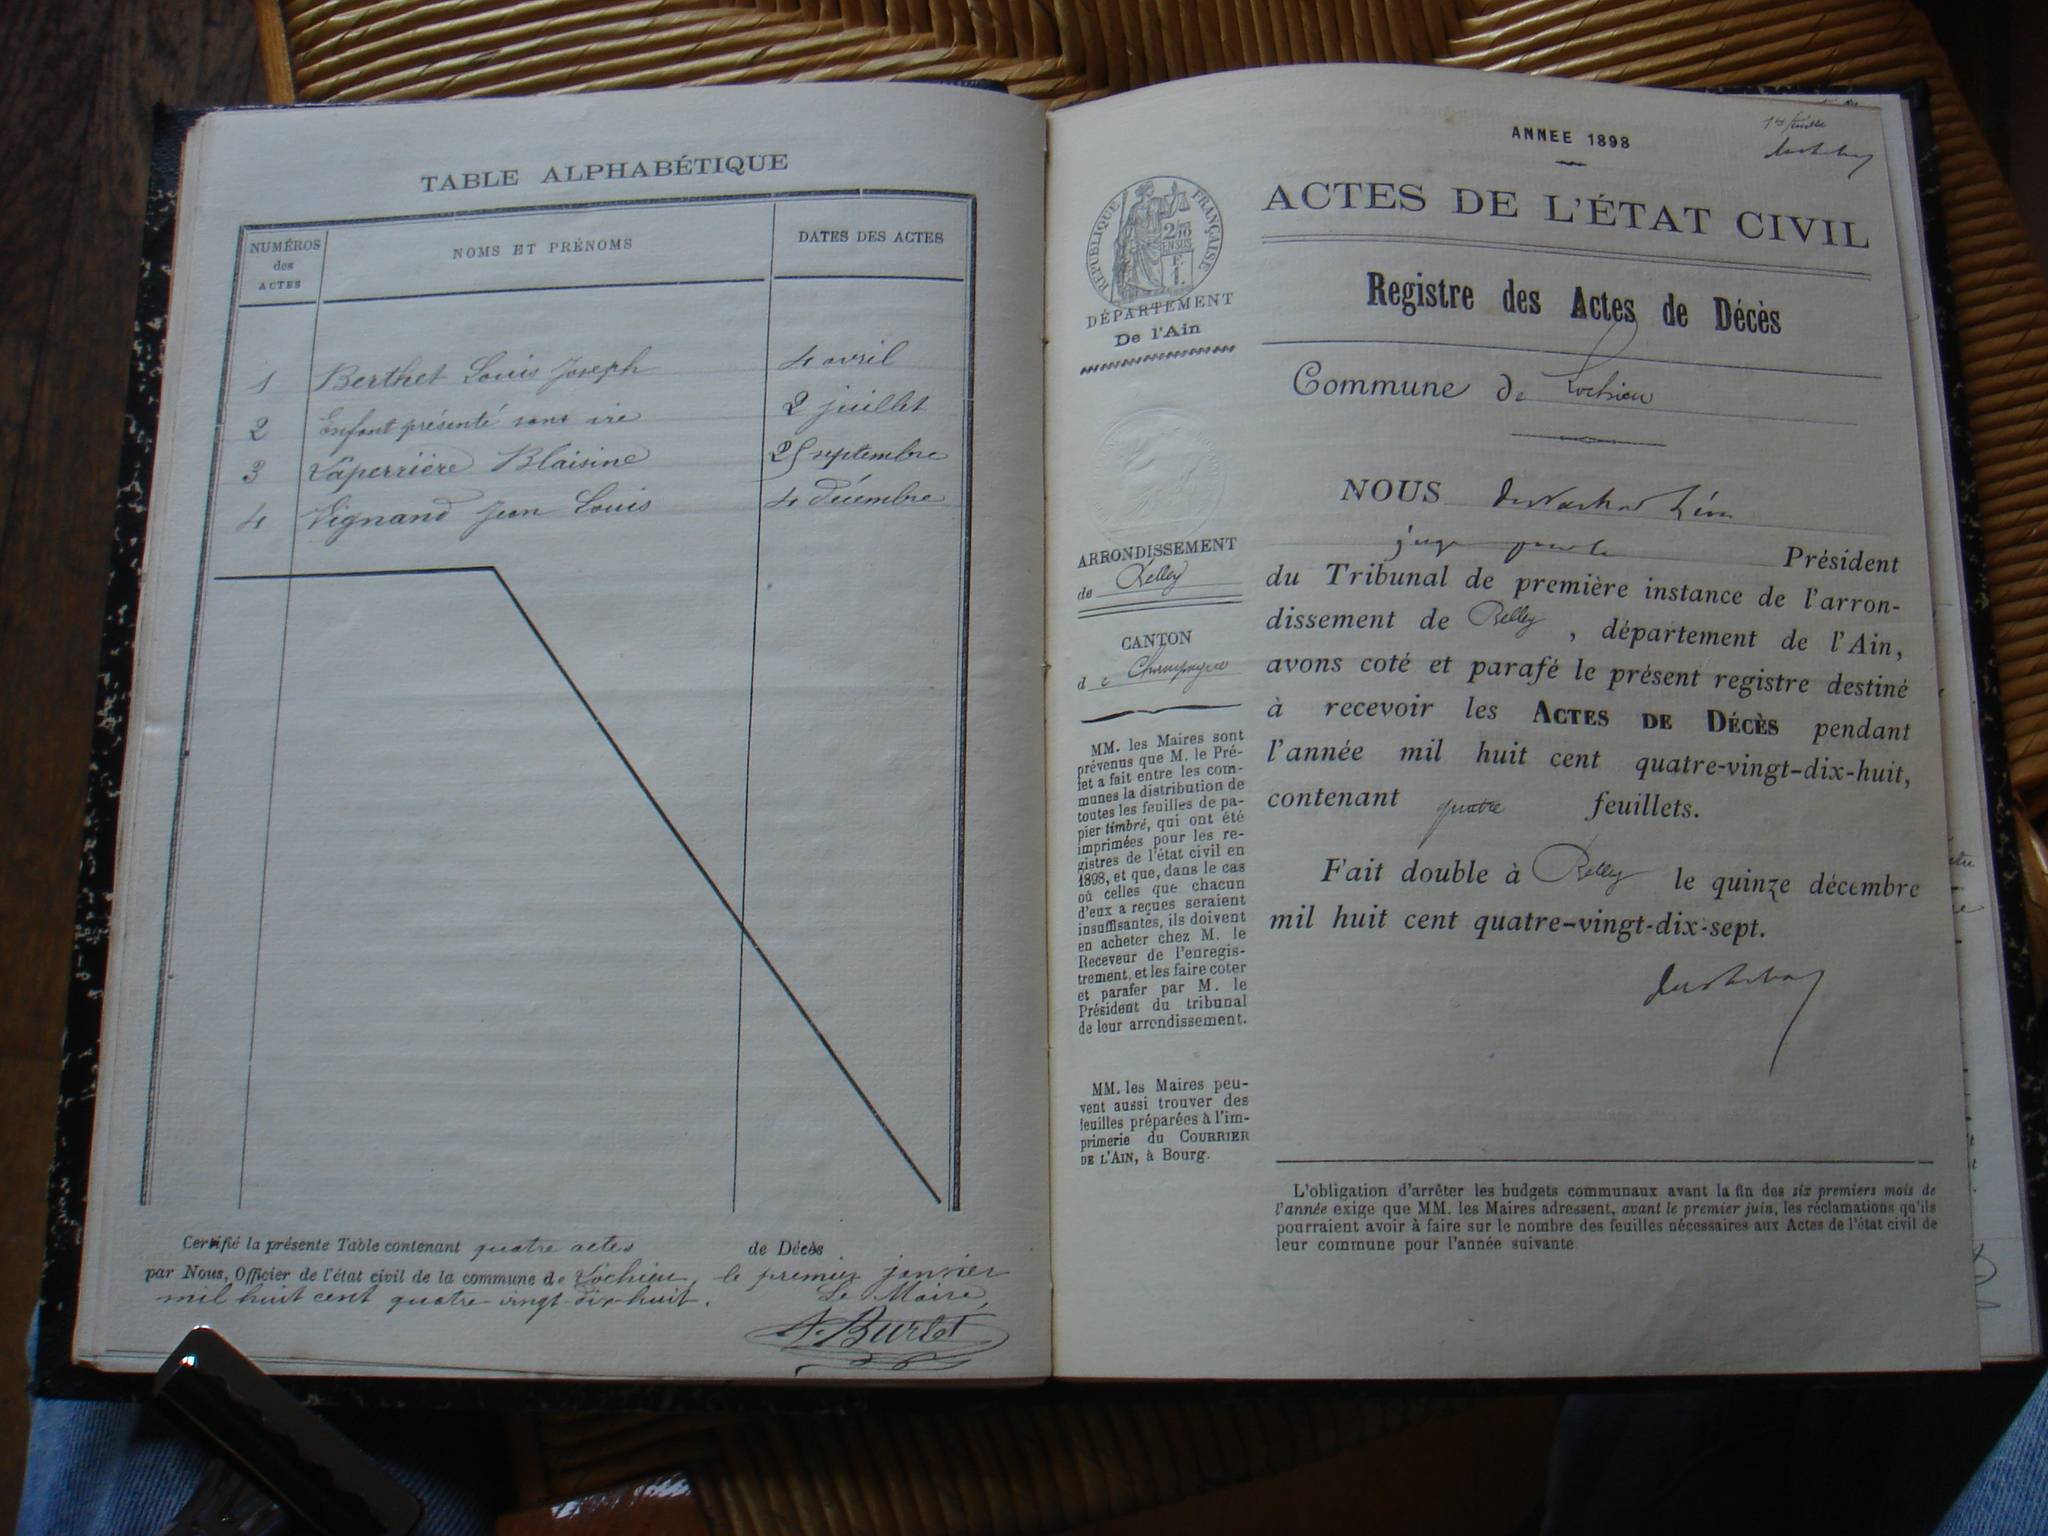 TABLE ALPHABÉTIQUE
NUMÉROS des ACTES
NOMS ET PRÉNOMS
DATES DES ACTES
1 Berthet Louis Joseph 4 avril
2 Enfant présenté sans vie 2 juillet
3 Laperrière Blaisine 25 septembre
4 Vignand Jean Louis 4 décembre
Certifié la présente Table contenant quatre actes de Décès
par Nous, Officier de l'état civil de la commune de Lochieu, le premier janvier
mil huit cent quatre-vingt-dix-huit.
Le Maire,
A. Burlet
ANNEE 1898
ACTES DE L'ÉTAT CIVIL
RÉPUBLIQUE FRANÇAISE
DÉPARTEMENT
De l'Ain
Registre des Actes de Décès
Commune de Lochieu
ARRONDISSEMENT
de Belley
CANTON
de Champagne
MM. les Maires sont
prévenus que M. le Pré-
fet a fait entre les com-
munes la distribution de
toutes les feuilles de pa-
pier timbré, qui ont été
imprimées pour les re-
gistres de l'état civil en
1898, et que, dans le cas
où celles que chacun
d'eux a reçues seraient
insuffisantes, ils doivent
en acheter chez M. le
Receveur de l'enregis-
trement, et les faire coter
et parafer par M. le
Président du tribunal
de leur arrondissement.
MM. les Maires peu-
vent aussi trouver des
feuilles préparées à l'im-
primerie du COURRIER
DE L'AIN, à Bourg.
NOUS
Président
du Tribunal de première instance de l'arron-
dissement de Belley, département de l'Ain,
avons coté et parafé le présent registre destiné
à recevoir les ACTES DE DÉCÈS pendant
l'année mil huit cent quatre-vingt-dix-huit,
contenant quatre feuillets.
Fait double à Belley le quinze décembre
mil huit cent quatre-vingt-dix-sept.
L'obligation d'arrêter les budgets communaux avant la fin des six premiers mois de
l'année exige que MM. les Maires adressent, avant le premier juin, les réclamations qu'ils
pourraient avoir à faire sur le nombre des feuilles nécessaires aux Actes de l'état civil de
leur commune pour l'année suivante